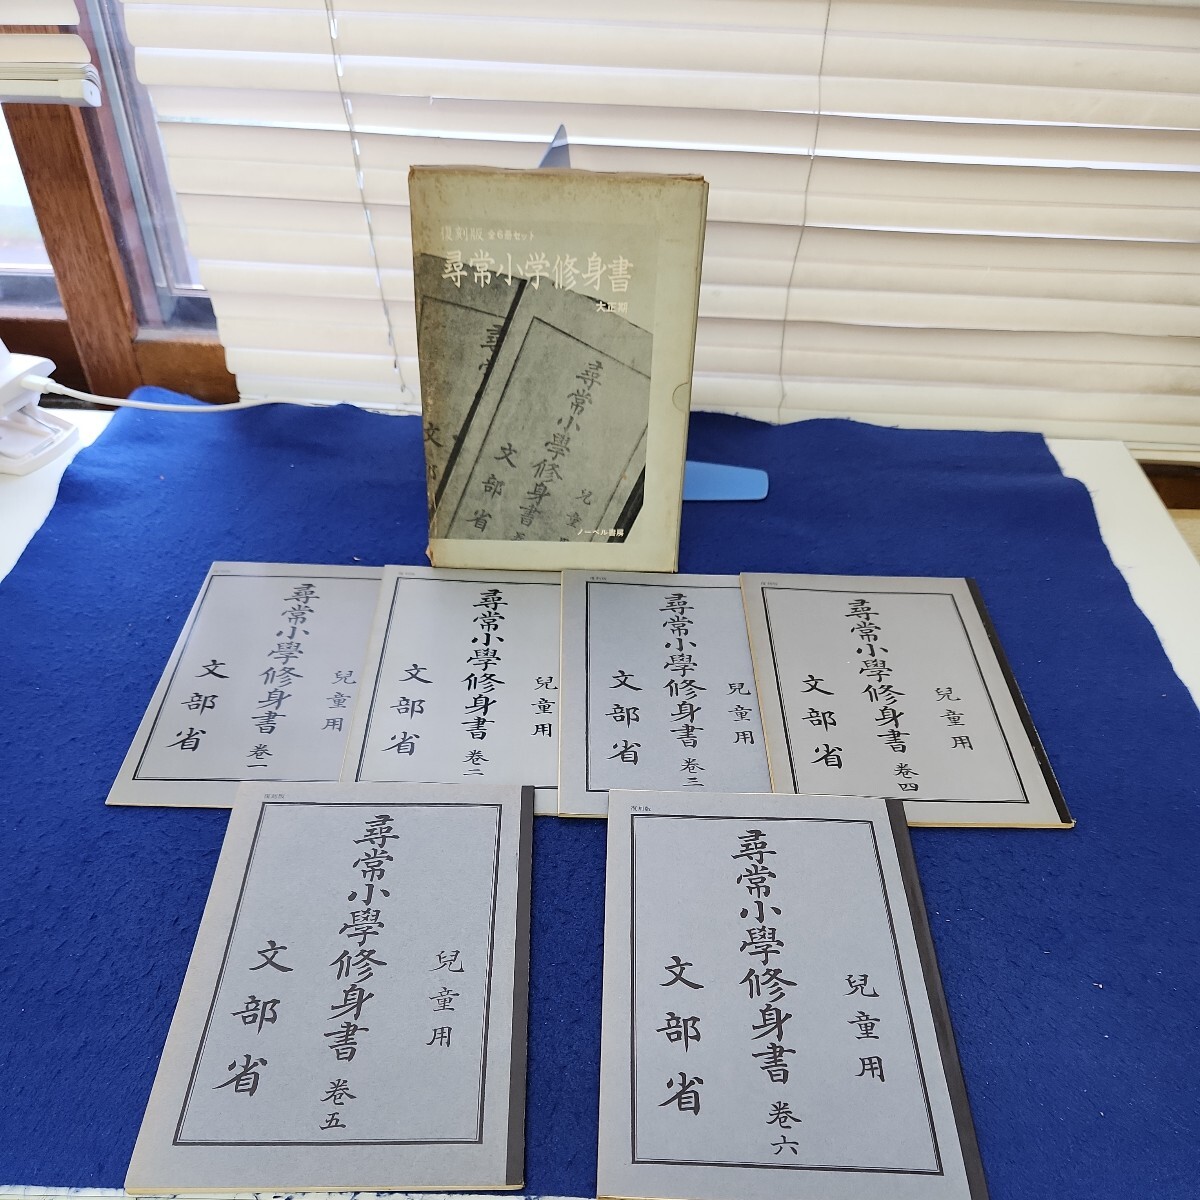 復刻版 全6冊セット
尋常小学修身書
大正期
尋常小學修身書
兒童
文部省
文部
ノーベル書房
復刻版
尋常小學修身書 卷一
兒童用
文部省
復刻版
尋常小學修身書 卷二
兒童用
文部省
復刻版
尋常小學修身書 卷三
兒童用
文部省
復刻版
尋常小學修身書 卷四
兒童用
文部省
復刻版
尋常小學修身書 卷五
兒童用
文部省
復刻版
尋常小學修身書 卷六
兒童用
文部省